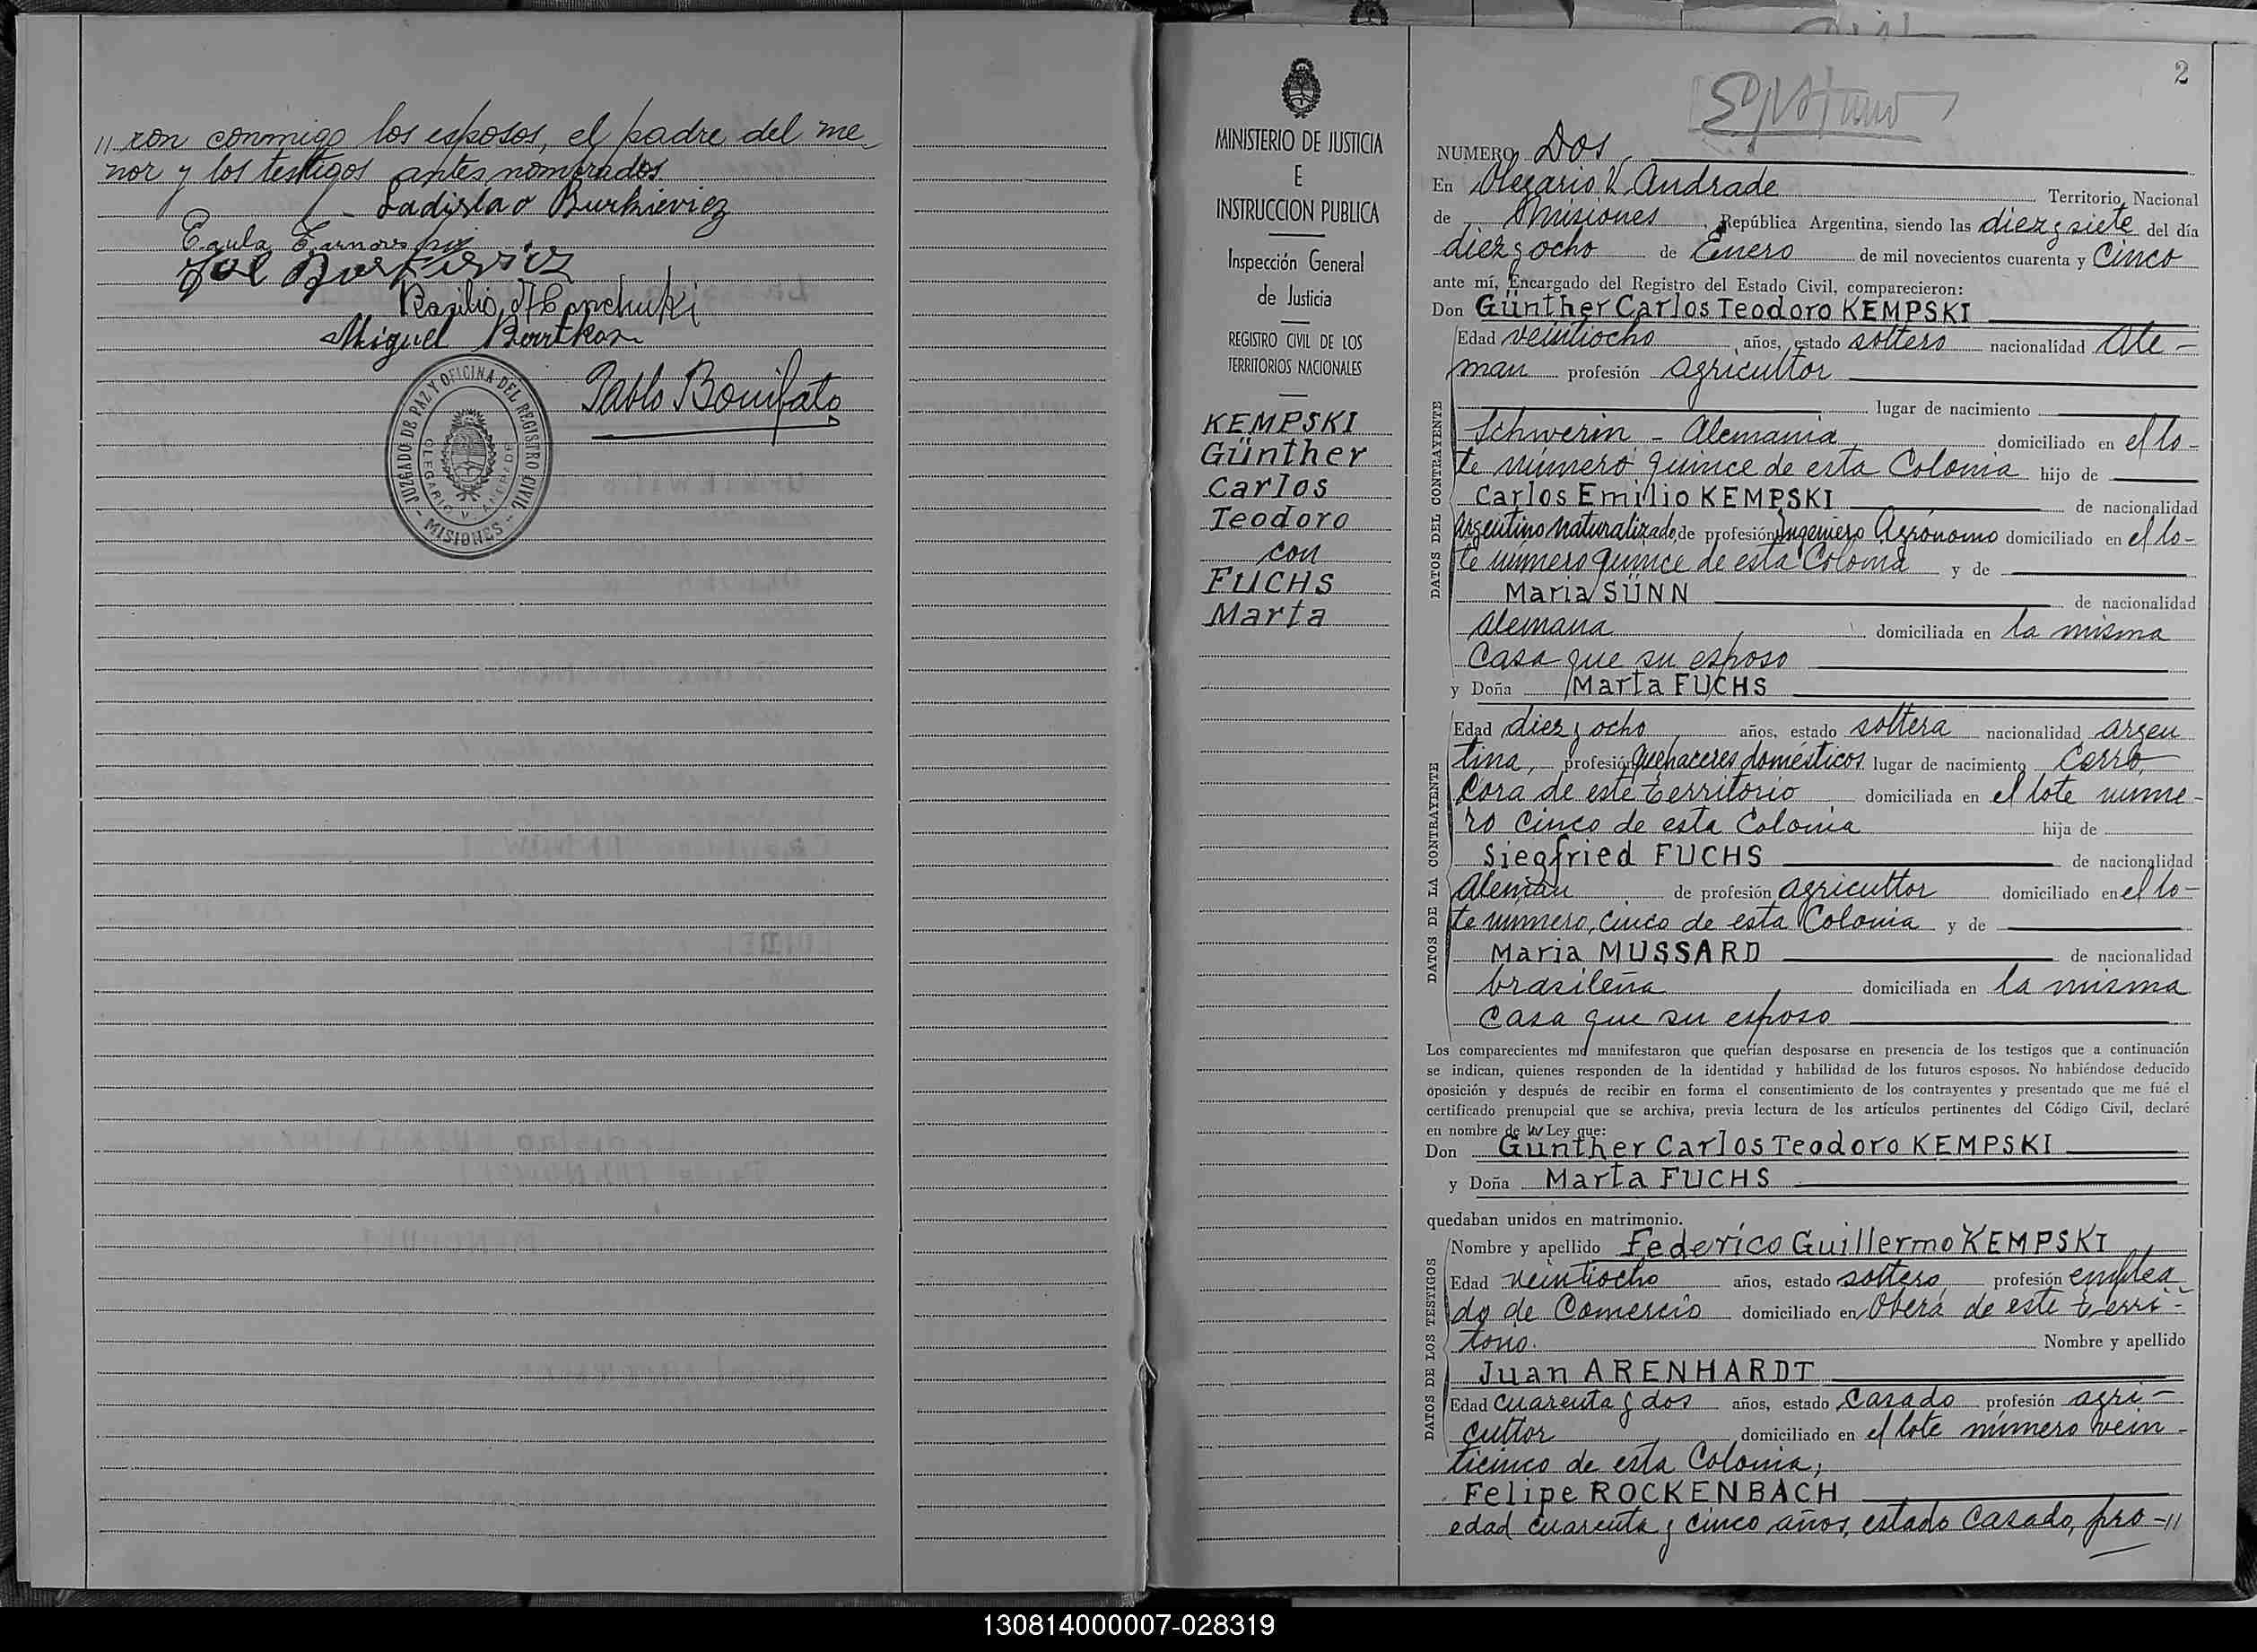 // ron conmigo los esposos, el padre del me
nor y los testigos antes nombrados
Ladislao Burkievicz
Miguel
Pablo Bonifato
JUZGADO DE PAZ Y OFICINA DEL REGISTRO CIVIL
OLEGARIO V. ANDRADE
- MISIONES -
MINISTERIO DE JUSTICIA
E
INSTRUCCION PUBLICA
Inspección General
de Justicia
REGISTRO CIVIL DE LOS
TERRITORIOS NACIONALES
KEMPSKI
Günther
Carlos
Teodoro
con
FUCHS
Marta
2
NUMERO Dos
En Olegario V. Andrade Territorio Nacional
de Misiones, República Argentina, siendo las diez y siete del día
diez y ocho de Enero de mil novecientos cuarenta y Cinco
ante mí, Encargado del Registro del Estado Civil, comparecieron:
Don Günther Carlos Teodoro KEMPSKI
DATOS DEL CONTRAYENTE
Edad veintiocho años, estado soltero nacionalidad Ale-
man profesión agricultor
lugar de nacimiento
Schwerin - Alemania domiciliado en el lo-
te número quince de esta Colonia hijo de
Carlos Emilio KEMPSKI de nacionalidad
Argentino Naturalizado, de profesión Ingeniero Agrónomo domiciliado en el lo-
te número quince de esta Colonia y de
Maria SÜNN de nacionalidad
alemana domiciliada en la misma
Casa que su esposo
y Doña Marta FUCHS
DATOS DE LA CONTRAYENTE
Edad diez y ocho años, estado soltera nacionalidad argen
tina, profesión Quehaceres domésticos lugar de nacimiento Cerro
Cora de este territorio domiciliada en el lote nume-
ro Cinco de esta Colonia hija de
Siegfried FUCHS de nacionalidad
Alemán de profesión agricultor domiciliado en el lo-
te numero, Cinco de esta Colonia y de
Maria MUSSARD de nacionalidad
brasileña domiciliada en la misma
Casa que su esposo
Los comparecientes me manifestaron que querían desposarse en presencia de los testigos que a continuación
se indican, quienes responden de la identidad y habilidad de los futuros esposos. No habiéndose deducido
oposición y después de recibir en forma el consentimiento de los contrayentes y presentado que me fué el
certificado prenupcial que se archiva, previa lectura de los artículos pertinentes del Código Civil, declaré
en nombre de la Ley que:
Don Gunther Carlos Teodoro KEMPSKI
y Doña Marta FUCHS
quedaban unidos en matrimonio.
DATOS DE LOS TESTIGOS
Nombre y apellido Federico Guillermo KEMPSKI
Edad veintiocho años, estado soltero profesión emplea
do de Comercio domiciliado en Oberá de este terri-
torio. Nombre y apellido
Juan ARENHARDT
Edad cuarenta y dos años, estado Casado profesión agri-
cultor domiciliado en el lote número vein-
ticinco de esta Colonia;
Felipe ROCKENBACH
edad cuarenta y cinco años, estado Casado, pro-//
130814000007-028319